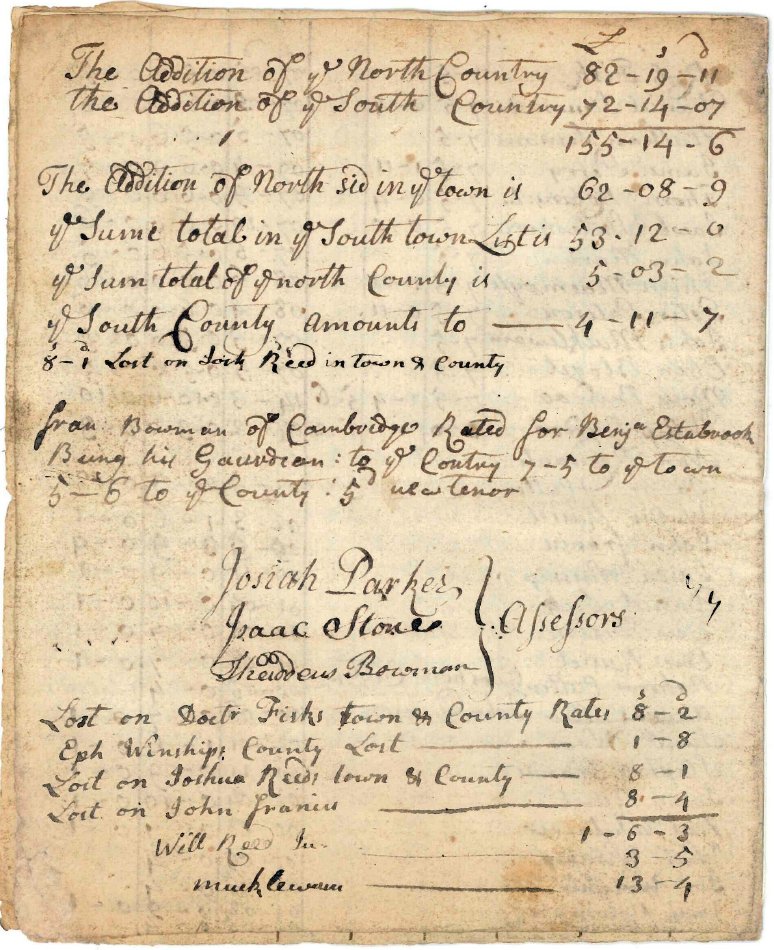 £ s d
The Addition of ye North Country 82-19-11
the Addition of ye South Country 72-14-07
155-14-6
The Addition of North sid in ye town is 62-08-9
ye Sume total in ye South town List is 53-12-0
ye Sum total of ye north County is 5-03-2
ye South County amounts to — 4-11-7
s d
8-1 Lost on Josh Reed in town & County
fran Bowman of Cambridge Rated for Benja Estabrook
Being his Gaurdian: to ye Contry 7-5 to ye town
5-6 to ye County: 5d new tenor
Josiah Parker
Isaac Stone
Thaddeus Bowman
Assessors
s d
Lost on Doctr Fisks town & County Rates 8-2
Eph Winships County Lost — 1-8
Lost on Joshua Reeds town & County — 8-1
Lost on John francis — 8-4
1-6-3
Will Reed Ju. 3-5
mucklewain — 13-4